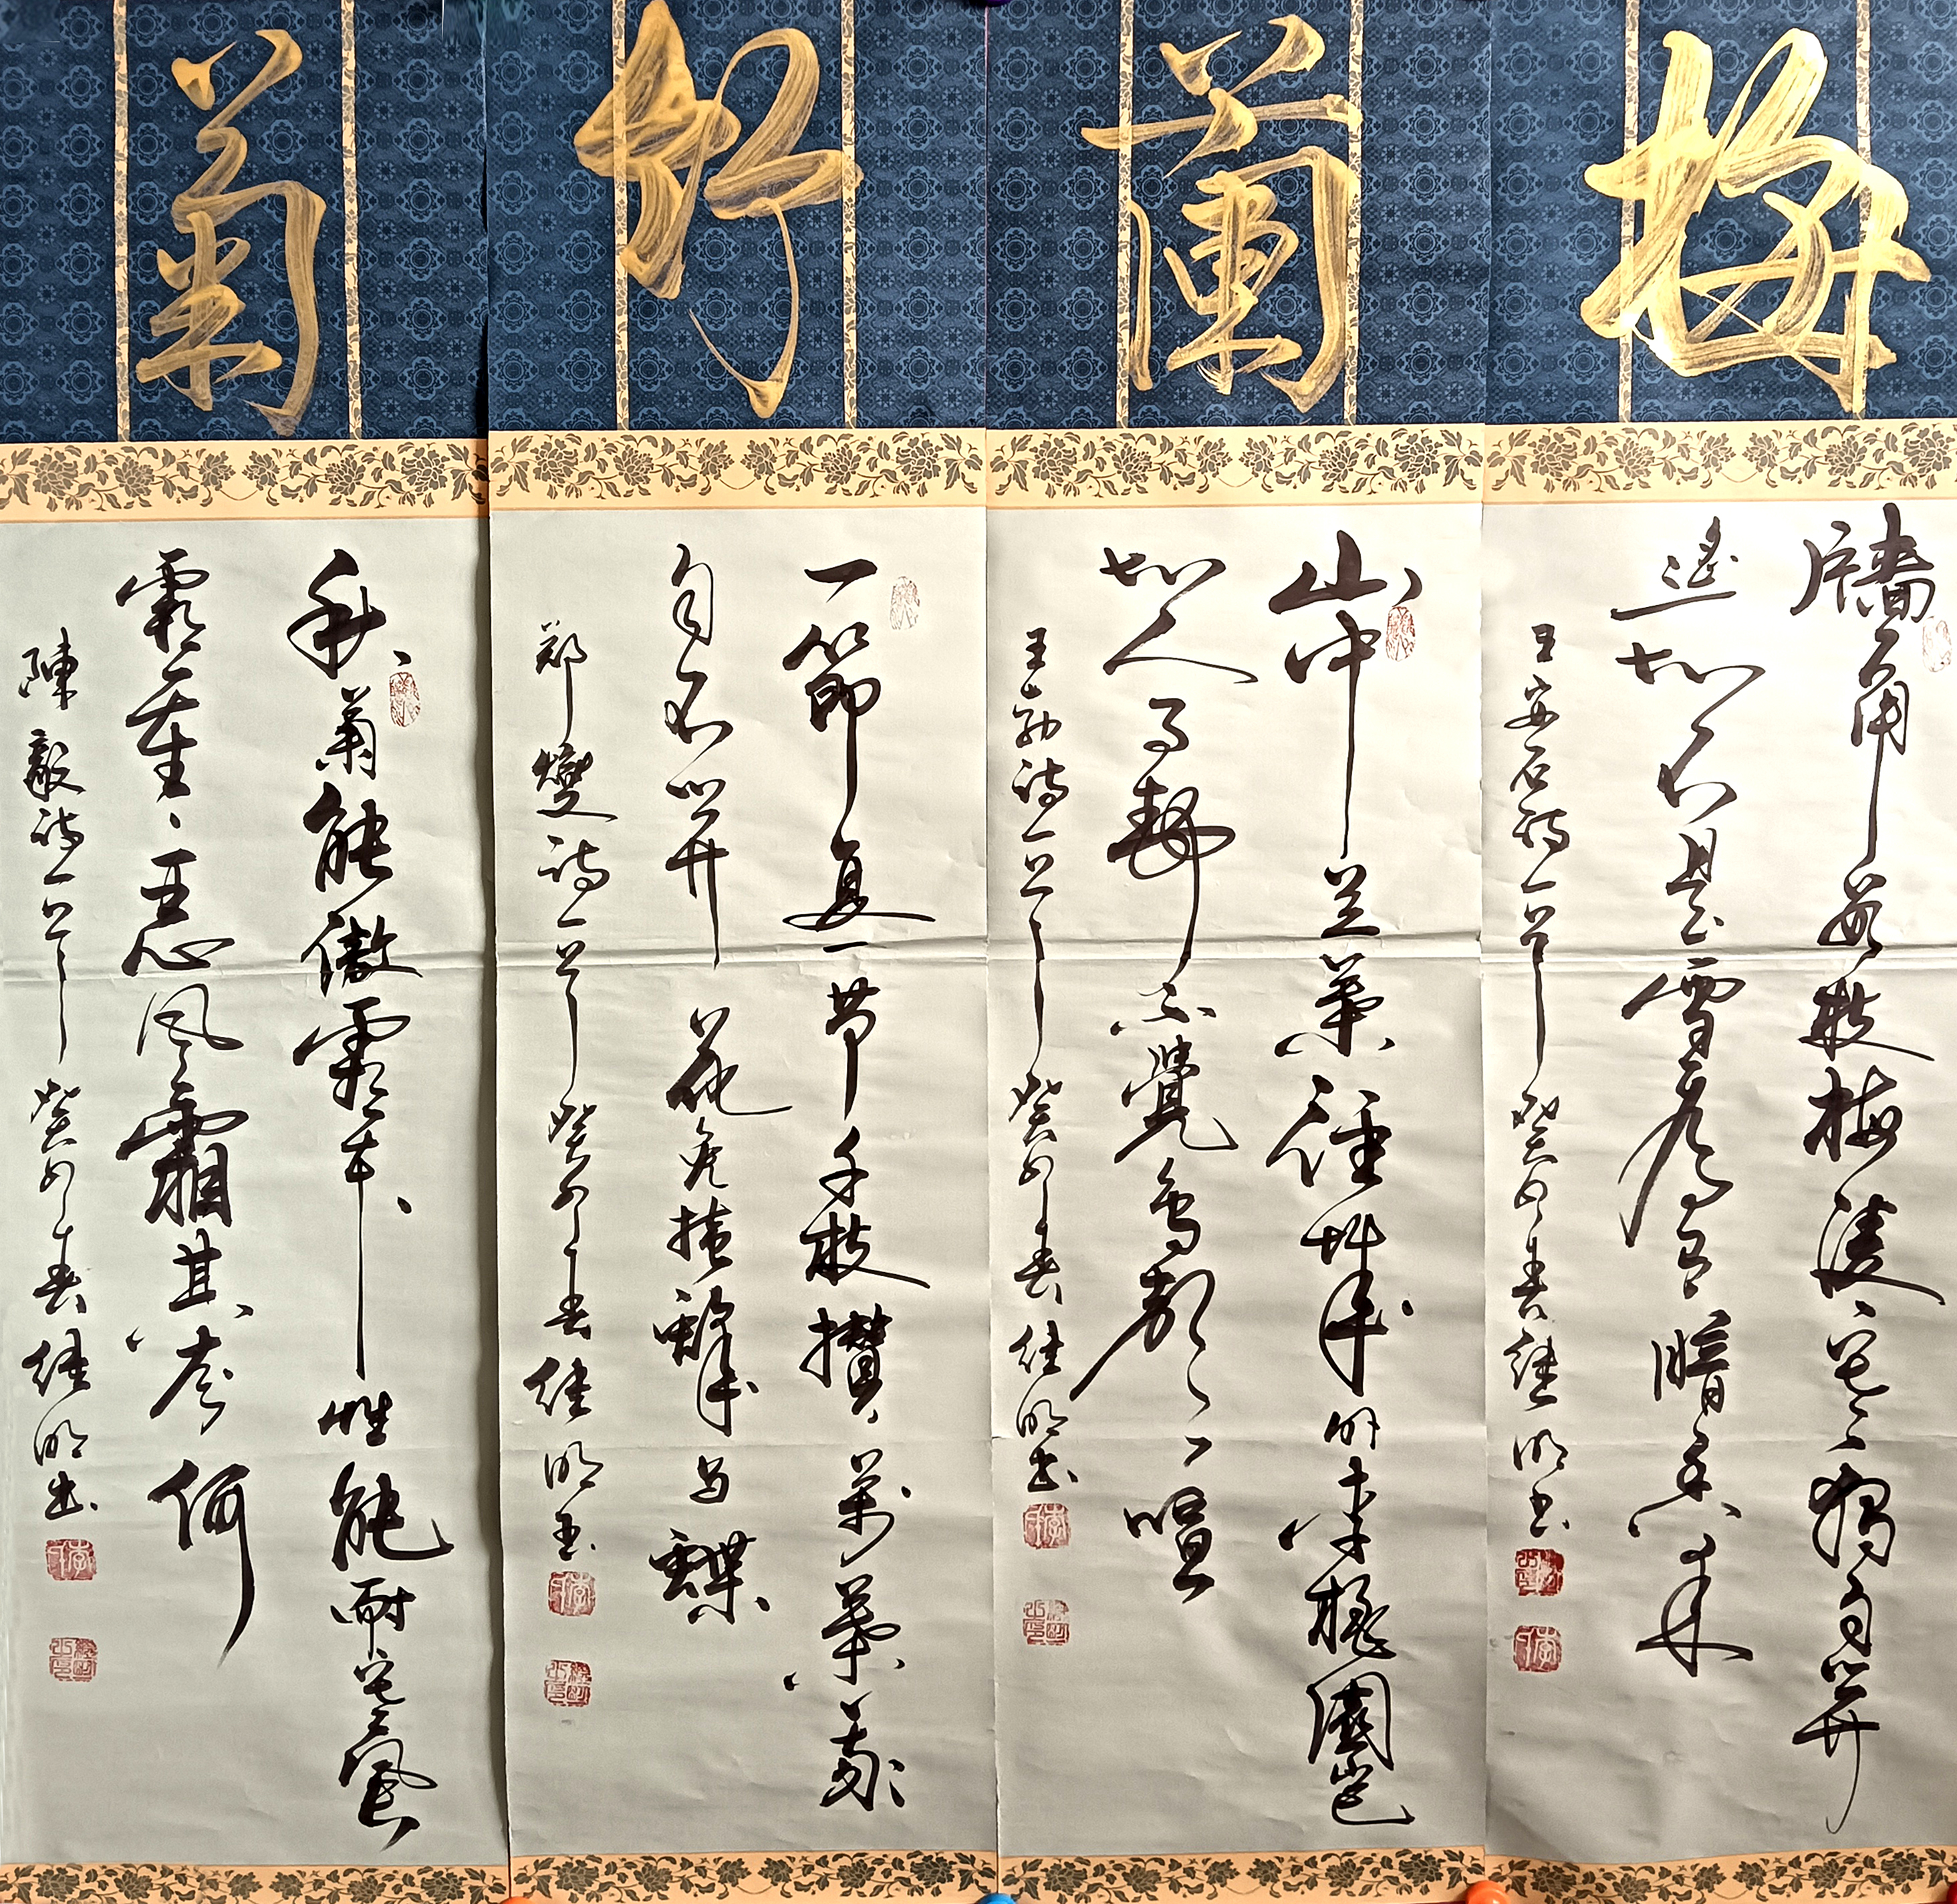 梅
牆角數枝梅凌寒獨自開
遙知不是雪為有暗香來
王安石詩一首癸卯春继明书
蘭
山中兰葉徑城外李桃園豈
知人事靜不覺鳥聲喧
王勃诗一首癸卯春继明书
竹
一節复一节千枝攢萬葉我
自不開花免撩蜂与蝶
郑燮诗一首癸卯春继明书
菊
秋菊能傲霜本性能耐寒風
霜重重恶风霜其奈何
陳毅诗一首癸卯春继明书